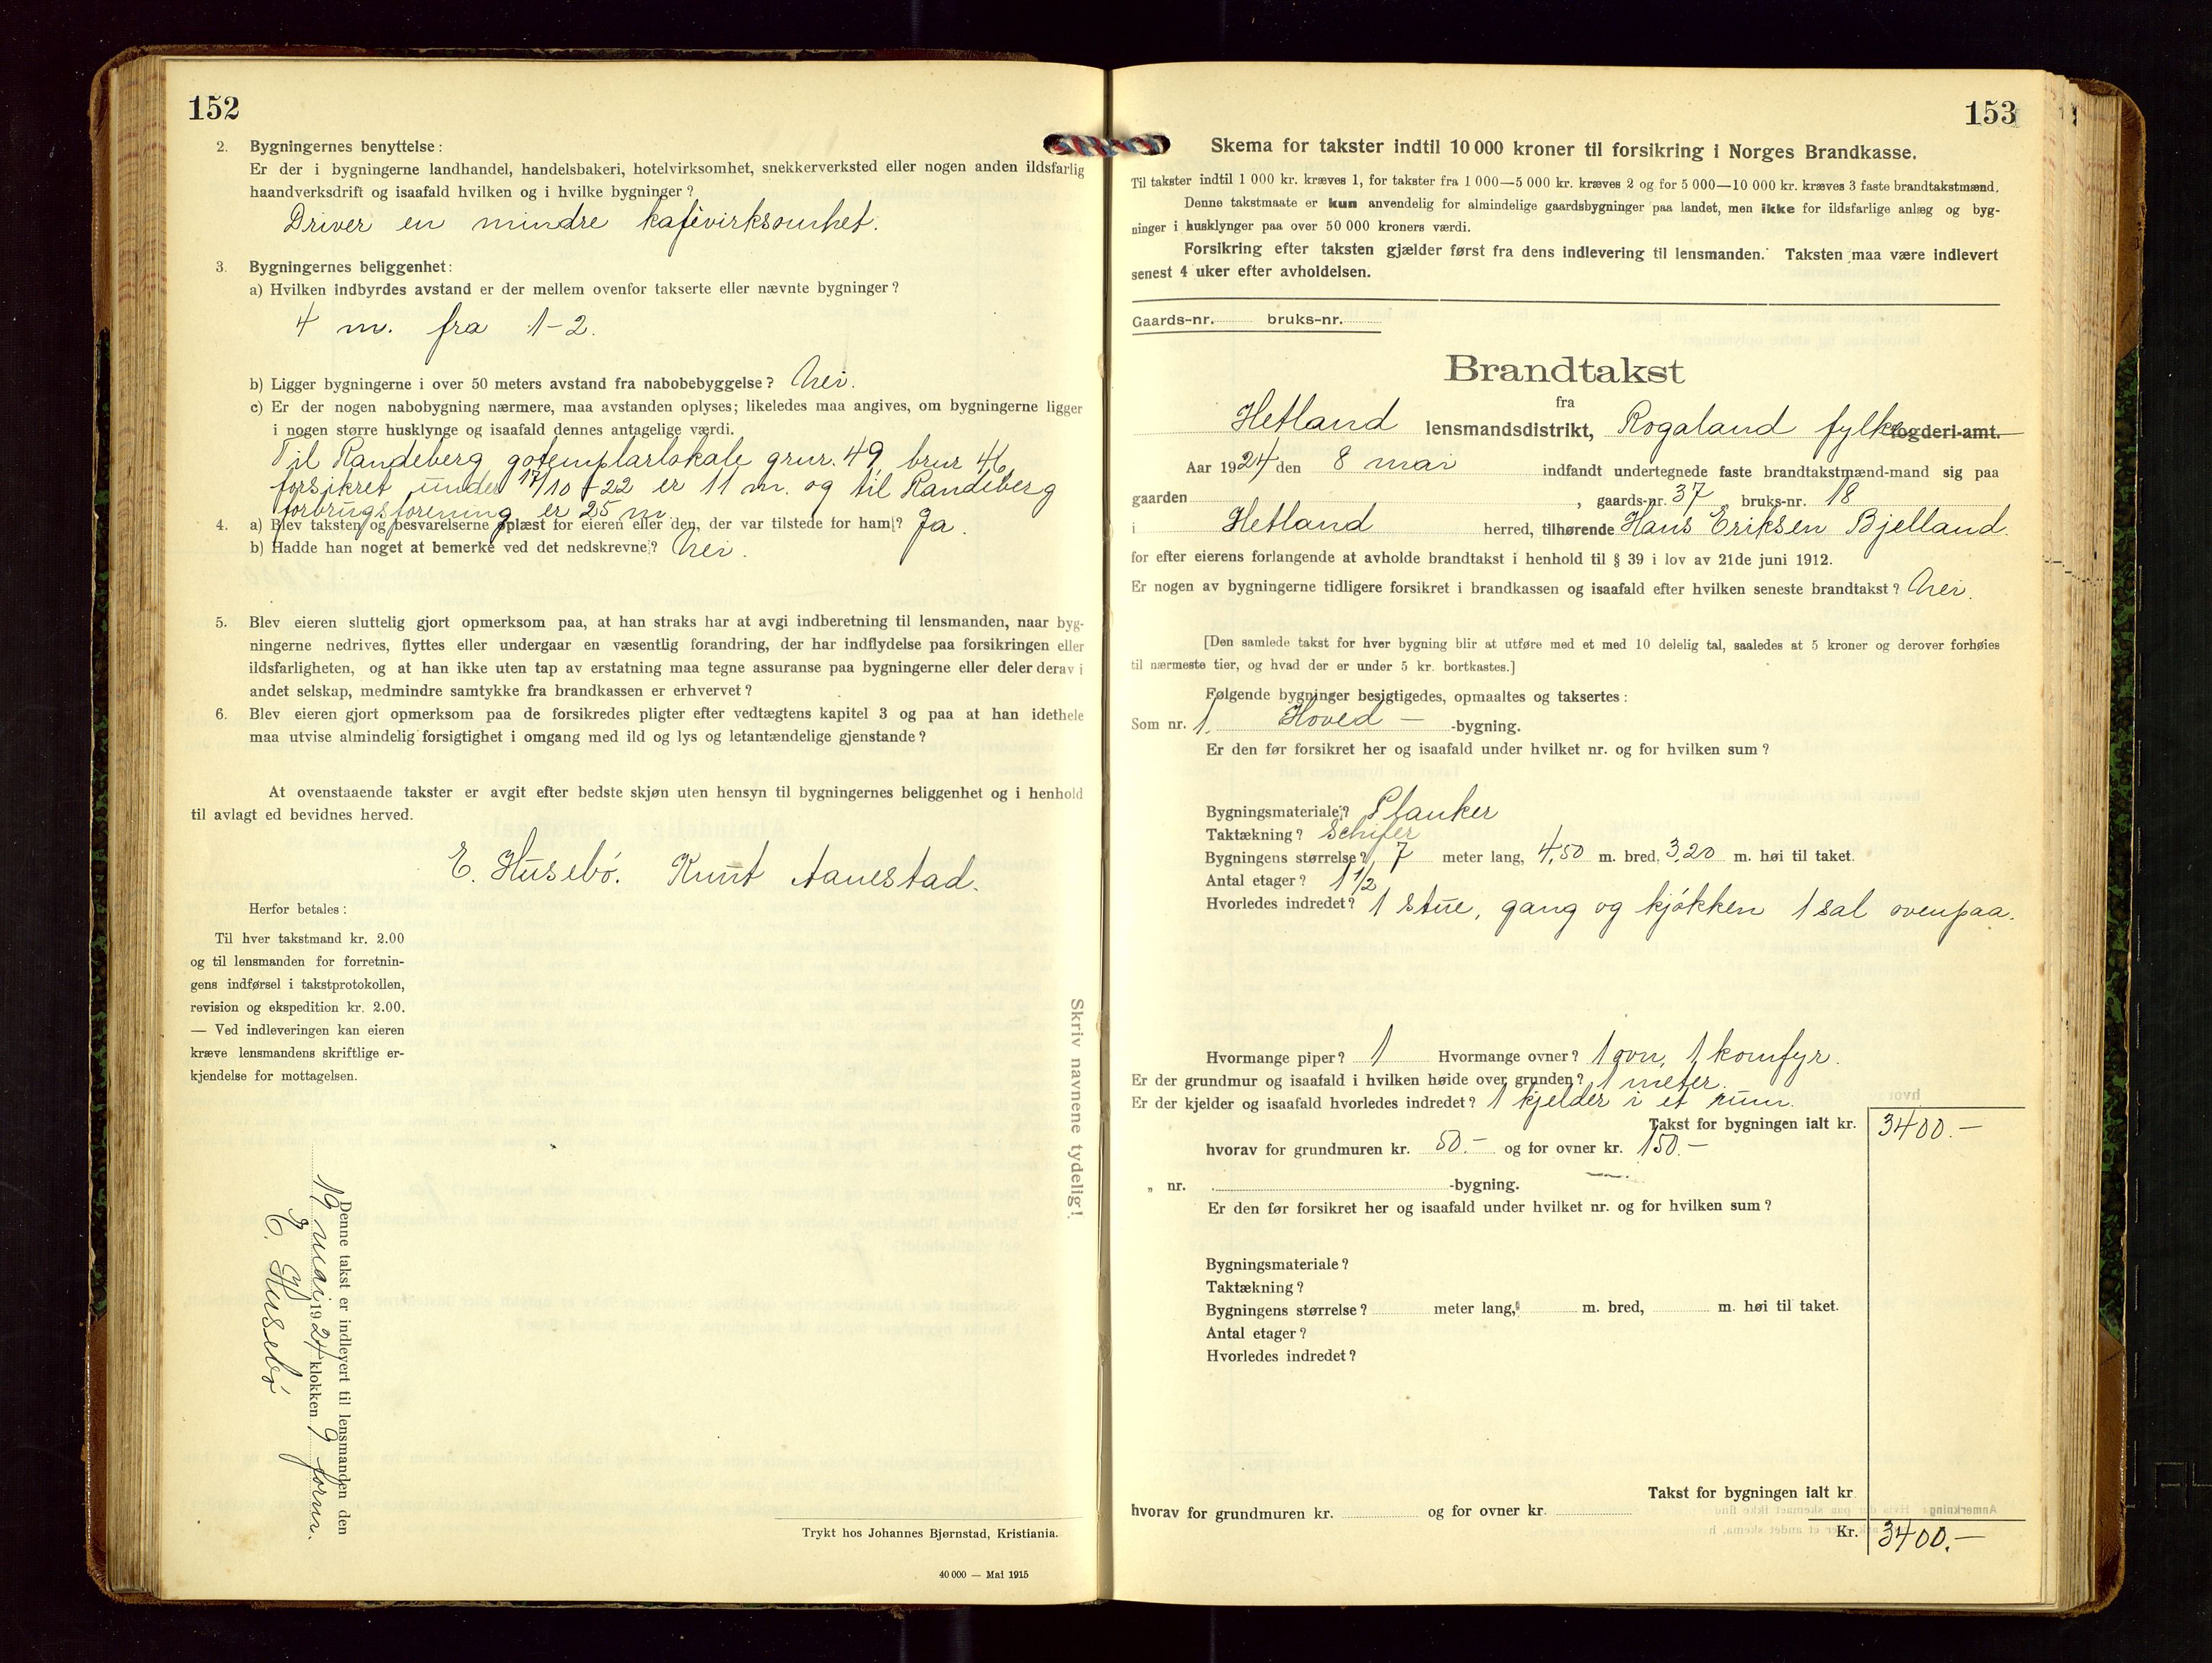 152
2. Bygningernes benyttelse:
Er der i bygningerne landhandel, handelsbakeri, hotelvirksomhet, snekkerverksted eller nogen anden ildsfarlig
haandverksdrift og isaafald hvilken og i hvilke bygninger?
Driver en mindre kafèvirksomhet.
3. Bygningernes beliggenhet:
a) Hvilken indbyrdes avstand er der mellem ovenfor takserte eller nævnte bygninger?
4 m. fra 1-2.
b) Ligger bygningerne i over 50 meters avstand fra nabobebyggelse? Nei.
c) Er der nogen nabobygning nærmere, maa avstanden oplyses; likeledes maa angives, om bygningerne ligger
i nogen større husklynge og isaafald dennes antagelige værdi.
Til Randeberg gotemplarlokale grnr. 49, brnr 46,
forsikret under 17/10-22 er 11 m. og til Randeberg
forbrugsforening er 25 m.
4. a) Blev taksten og besvarelserne oplæst for eieren eller den, der var tilstede for ham? Ja.
b) Hadde han noget at bemerke ved det nedskrevne? Nei.
5. Blev eieren sluttelig gjort opmerksom paa, at han straks har at avgi indberetning til lensmanden, naar byg-
ningerne nedrives, flyttes eller undergaar en væsentlig forandring, der har indflydelse paa forsikringen eller
ildsfarligheten, og at han ikke uten tap av erstatning maa tegne assuranse paa bygningerne eller deler derav i
andet selskap, medmindre samtykke fra brandkassen er erhvervet?
6. Blev eieren gjort opmerksom paa de forsikredes pligter efter vedtægtens kapitel 3 og paa at han idethele
maa utvise almindelig forsigtighet i omgang med ild og lys og letantændelige gjenstande?
At ovenstaaende takster er avgit efter bedste skjøn uten hensyn til bygningernes beliggenhet og i henhold
til avlagt ed bevidnes herved.
E. Husebö. Knut Aanestad.
Herfor betales:
Til hver takstmand kr. 2.00
og til lensmanden for forretnin-
gens indførsel i takstprotokollen,
revision og ekspedition kr. 2.00.
— Ved indleveringen kan eieren
kræve lensmandens skriftlige er-
kjendelse for mottagelsen.
Denne takst er indlevert til lensmanden den
19 mai 1924 klokken 9 form.
E. Husebö
Skriv navnene tydelig!
Trykt hos Johannes Bjørnstad, Kristiania.
40 000 — Mai 1915
153
Skema for takster indtil 10 000 kroner til forsikring i Norges Brandkasse.
Til takster indtil 1 000 kr. kræves 1, for takster fra 1 000—5 000 kr. kræves 2 og for 5 000—10 000 kr. kræves 3 faste brandtakstmænd.
Denne takstmaate er kun anvendelig for almindelige gaardsbygninger paa landet, men ikke for ildsfarlige anlæg og byg-
ninger i husklynger paa over 50 000 kroners værdi.
Forsikring efter taksten gjælder først fra dens indlevering til lensmanden. Taksten maa være indlevert
senest 4 uker efter avholdelsen.
Gaards-nr. bruks-nr.
Brandtakst
fra
Hetland lensmandsdistrikt, Rogaland fylke fogderi-amt.
Aar 1924 den 8 mai indfandt undertegnede faste brandtakstmænd-mand sig paa
gaarden , gaards-nr. 37 bruks-nr. 18
i Hetland herred, tilhørende Hans Eriksen Bjelland.
for efter eierens forlangende at avholde brandtakst i henhold til § 39 i lov av 21de juni 1912.
Er nogen av bygningerne tidligere forsikret i brandkassen og isaafald efter hvilken seneste brandtakst? Nei.
[Den samlede takst for hver bygning blir at utføre med et med 10 delelig tal, saaledes at 5 kroner og derover forhøies
til nærmeste tier, og hvad der er under 5 kr. bortkastes.]
Følgende bygninger besigtigedes, opmaaltes og taksertes:
Som nr. 1. Hoved- -bygning.
Er den før forsikret her og isaafald under hvilket nr. og for hvilken sum?
Bygningsmateriale? Planker
Taktækning? Schifer
Bygningens størrelse? 7 meter lang, 4,50 m. bred, 3,20 m. høi til taket.
Antal etager? 1 1/2
Hvorledes indredet? 1 stue, gang og kjökken 1 sal ovenpaa.
Hvormange piper? 1 Hvormange ovner? 1 ovn, 1 komfyr.
Er der grundmur og isaafald i hvilken høide over grunden? 1 meter.
Er der kjelder og isaafald hvorledes indredet? 1 kjelder i et rum.
Takst for bygningen ialt kr. 3400.-
hvorav for grundmuren kr. 50.- og for ovner kr. 150.-
„ nr. -bygning.
Er den før forsikret her og isaafald under hvilket nr. og for hvilken sum?
Bygningsmateriale?
Taktækning?
Bygningens størrelse? meter lang, m. bred, m. høi til taket.
Antal etager?
Hvorledes indredet?
Takst for bygningen ialt kr.
hvorav for grundmuren kr. og for ovner kr.
Kr. 3400.-